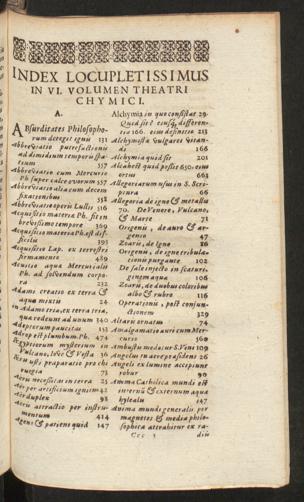 INDEX LOCUPLETISSIMUS
IN VI. VOLUMEN THEATRI
CHYMICI.
A.
ABsurditates Philosopho-
rum detegit ignis 131
Abbreviatio putrefactionis
ad dimidium temporis spa-
tium 557
Abbreviatio cum Mercurio
Ph super calce vorum 557
Abbreviatio alia cum decem
fixationibus 558
Abbreviatio operis Lullis 516
Acquisitio materia Ph. fit in
brevissimo tempore 369
Acquisitio materia Ph. est dif-
ficilis 393
Acquisitio Lap. ex terrestri
firmamento 489
Acuitio aqua Mercurialis
Ph. ad solvendum corpo-
ra 232
Adami creatio ex terra &
aqua mixtis 24
in Adamo tria, ex terra tria,
quae redeunt ad unum 140
Adeptorum paucitas 153
Adrop est plumbum Ph. 474
Aegyptiorum mysterium in
Vulcano, Iove & Vesta 36
Aeris usti praeparatio pro chi
rurgia 71
Aeris necessitas in terra 25
Aer per artificium ignis 42
Aer duplex 98
Aeris attractio per instru-
mentum 414
Agens & patiens quid 147
Alchymia in quo consistat 29
Quid sit & ejusq. differen-
tia 166. eius definitio 213
Alchymista Vulgares vitan-
166
Alchymia quid sit 201
ortus 663
Allegoriarum usus in S. Scri-
ptura 66
Allegoria de igne & metallis
70. De Venere, Vulcano,
& Marte 71
Origenis, de auro & ar-
gento 47
Zoaris, de Igne 26
Origenis, de igne tribula-
tionis purgante 102
De sale injecto in scaturi-
ginem aqua 106
Zoaris, de duobus coloribus
albo & rubro 116
Operationis, post conjun-
ctionem 329
Altaris ornatus 74
Amalgamatio auri cum Mer-
curio 360
Ambustis medicur S. Veni 109
Angelus in aere praesidens 26
Angelis ex lumine accepiunt
robur 90
Anima Catholica mundi est
internum & externum aqua
hyleali 147
Anima mundi generalis per
magnetes & media philo-
sophica attrahitur ex ra-
Ccc 3
diis